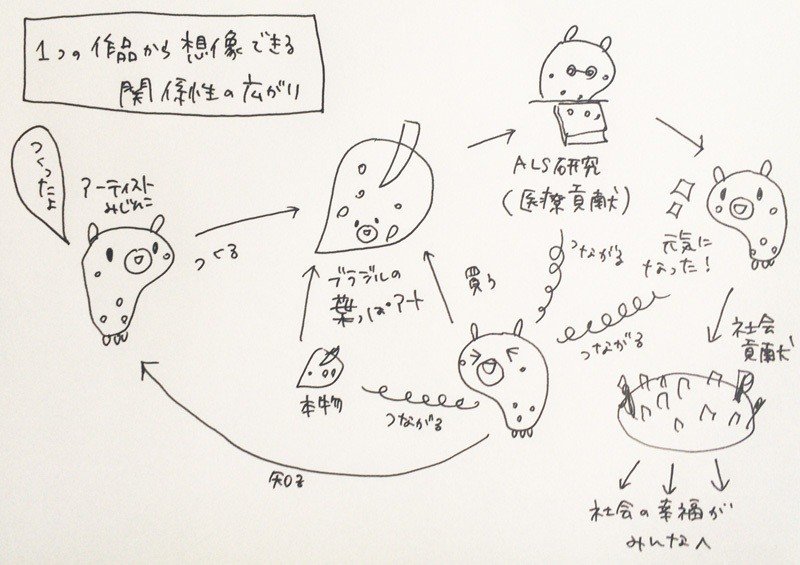 1つの作品から想像できる
関係性の広がり
つくったよ
アーティスト
みじんこ
つくる
ブラジルの
葉っぱアート
本物
つながる
知る
買う
ALS研究
(医療貢献)
つながる
つながる
元気に
なった!
社会
貢献
社会の幸福が
みんなへ